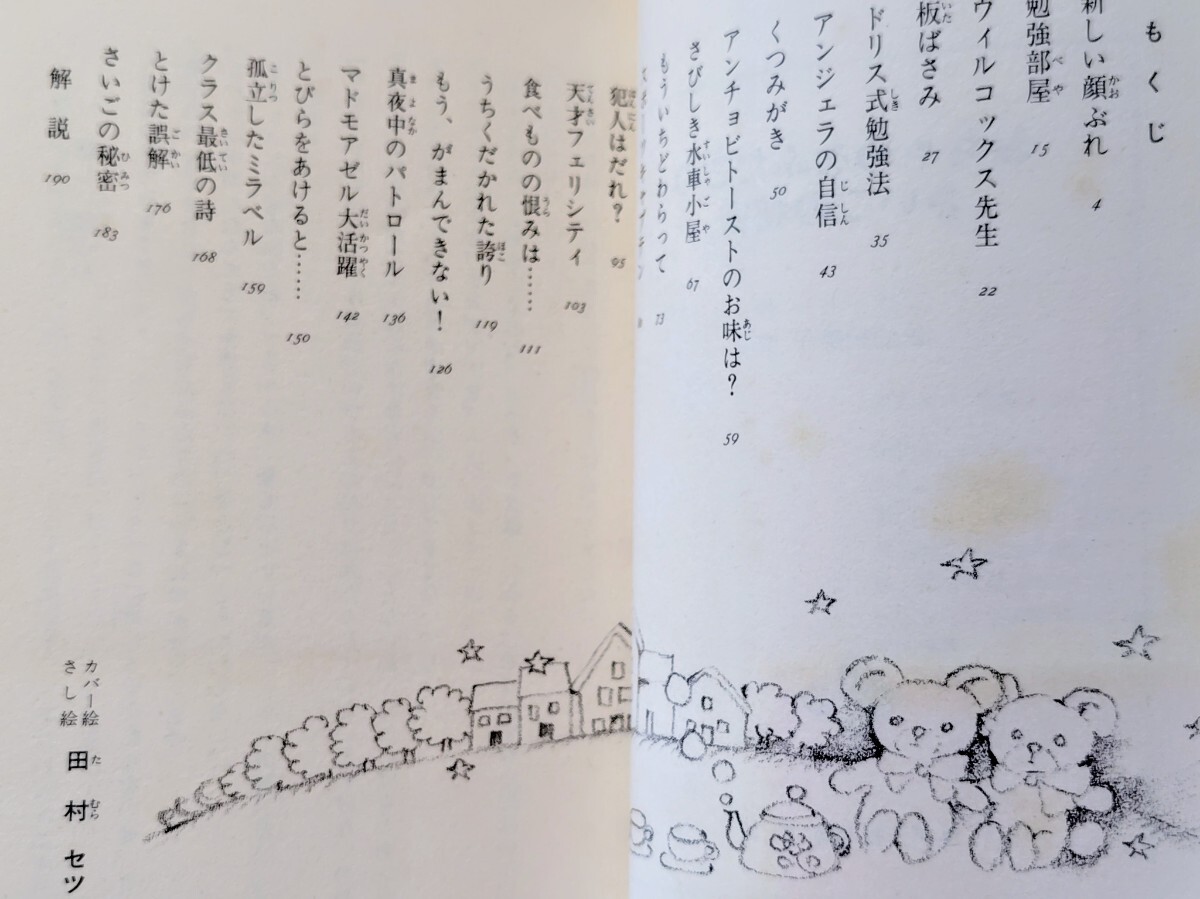 もくじ
新しい顔ぶれ 4
勉強部屋 15
ウィルコックス先生 22
板ばさみ 27
ドリス式勉強法 35
アンジェラの自信 43
くつみがき 50
アンチョビトーストのお味は？ 59
さびしき水車小屋 67
もういちどわらって 73
犯人はだれ？ 95
天才フェリシティ 103
食べものの恨みは…… 111
うちくだかれた誇り 119
もう、がまんできない！ 126
真夜中のパトロール 136
マドモアゼル大活躍 142
とびらをあけると…… 150
孤立したミラベル 159
クラス最低の詩 168
とけた誤解 176
さいごの秘密 183
解説 190
カバー絵
さし絵
田村セツ